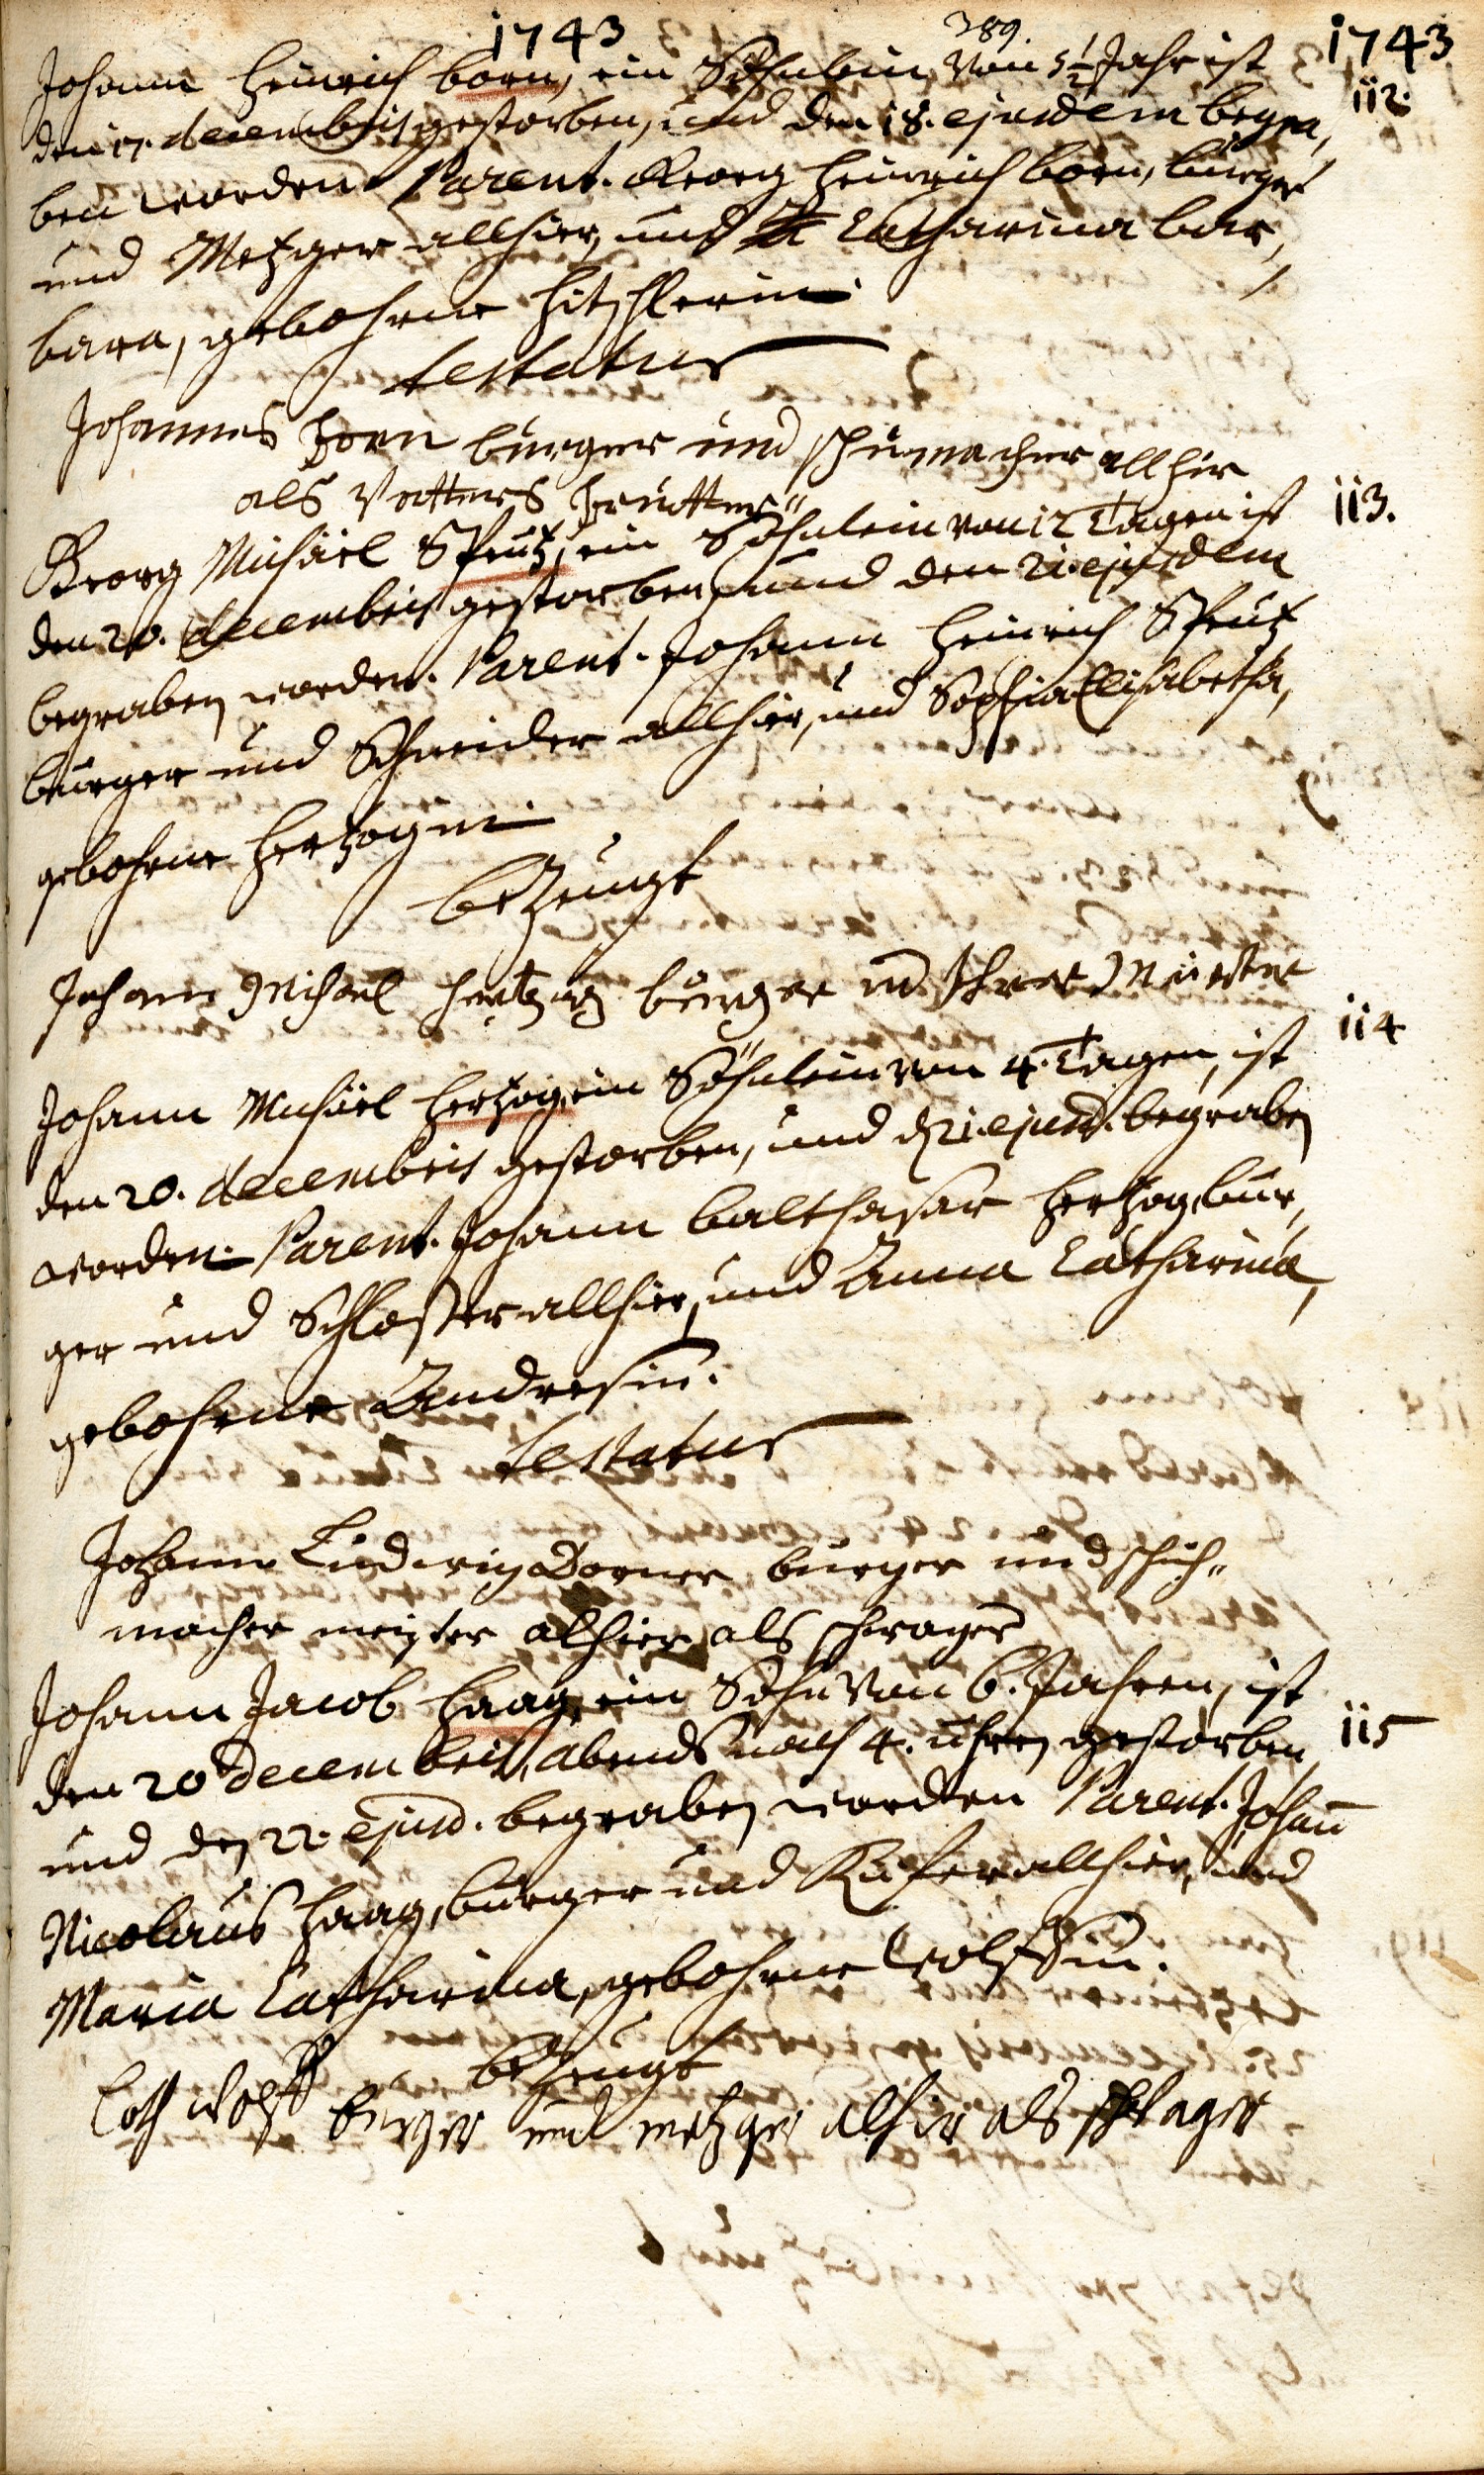 1743 389. 1743
Johann Heinrich born, ein Söhnlein von 5½ Jahr ist 112.
den 17. decembris gestorben, und den 18. ejusdem begra,
ben worden. Parent. Georg Heinrich born, burger
und Metzger allhier, und Catharina bar,
bara, gebohrne Hitschlerin.
testatur
Johannes born burger und schumacher allhir
als Vatters brutter
Georg Michäel Sprutz, ein Söhnlein von 12 Tagen ist 113.
den 20. decembris gestorben, und den 21. ejusdem
begraben worden. Parent. Johann Heinrich Sprutz
burger und Schneider allhier, und Sophia Elisabetha,
gebohrne Hertzogin
bezeugt
Johann Michael Hertzog burger
Johann Michäel Hertzog, ein Söhnlein von 4. Tagen, ist 114
den 20. decembris gestorben, und d. 21. ejusd. begraben
worden. Parent. Johann balthasar Hertzog, bur,
ger und Schlosser allhier, und Anna Catharina,
gebohrne Andresin.
testatur
Johann Ludwig Dorner burger und schuh-
macher meister alhier als schwager
Johann Jacob Haag, ein Sohn von 6. Jahren, ist
den 20 decembris, abends nach 4. uhren gestorben, 115
und den 22. ejusd. begraben worden Parent. Johann
Nicolaus Haag, burger und Kiefer allhier, und
Maria Catharina, gebohrne Wolffin.
bezeugt
Loth Wolff burger und metzger alhir als schwager